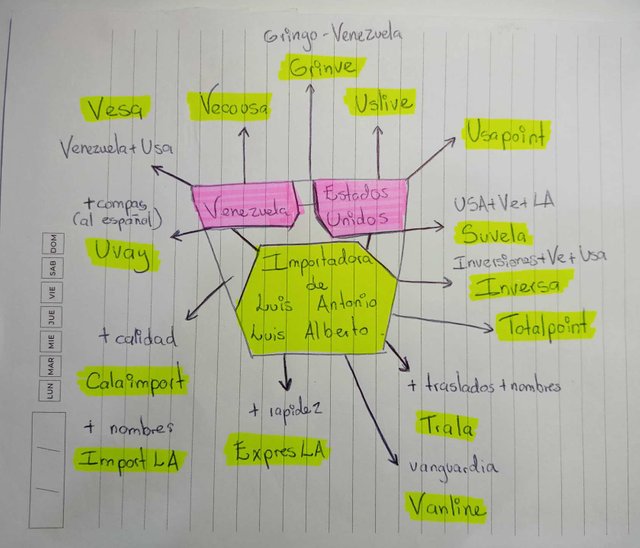 Gringo-Venezuela
Grinve
Vesa
Vecousa
Uslive
Usapoint
Venezuela+Usa
Venezuela
Estados
Unidos
+compas
(al español)
Uvay
USA+Ve+LA
Suvela
Importadora
de
Luis Antonio
Luis Alberto
Inversiones+Ve+Usa
Inversa
Totalpoint
+ calidad
Calaimport
+ traslados+nombres
Trala
+ rapidez
Expres LA
+ nombres
Import LA
vanguardia
Vanline
DOM
SAB
VIE
JUE
MIE
MAR
LUN